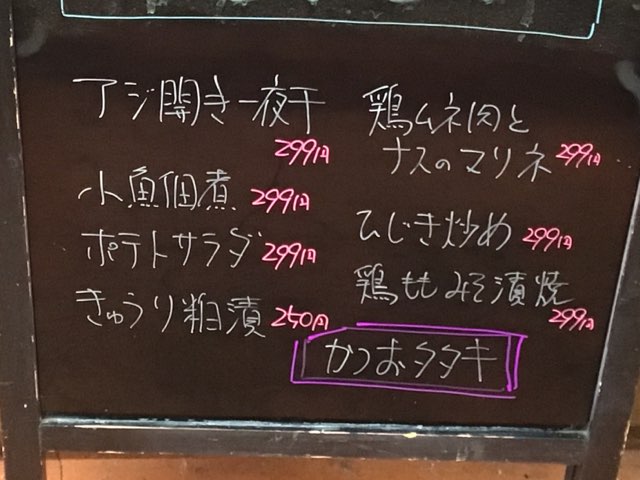 アジ開き一夜干
299円
小魚佃煮 299円
ポテトサラダ 299円
きゅうり粕漬 250円
鶏ムネ肉と
ナスのマリネ 299円
ひじき炒め 299円
鶏ももみそ漬焼
299円
かつおタタキ